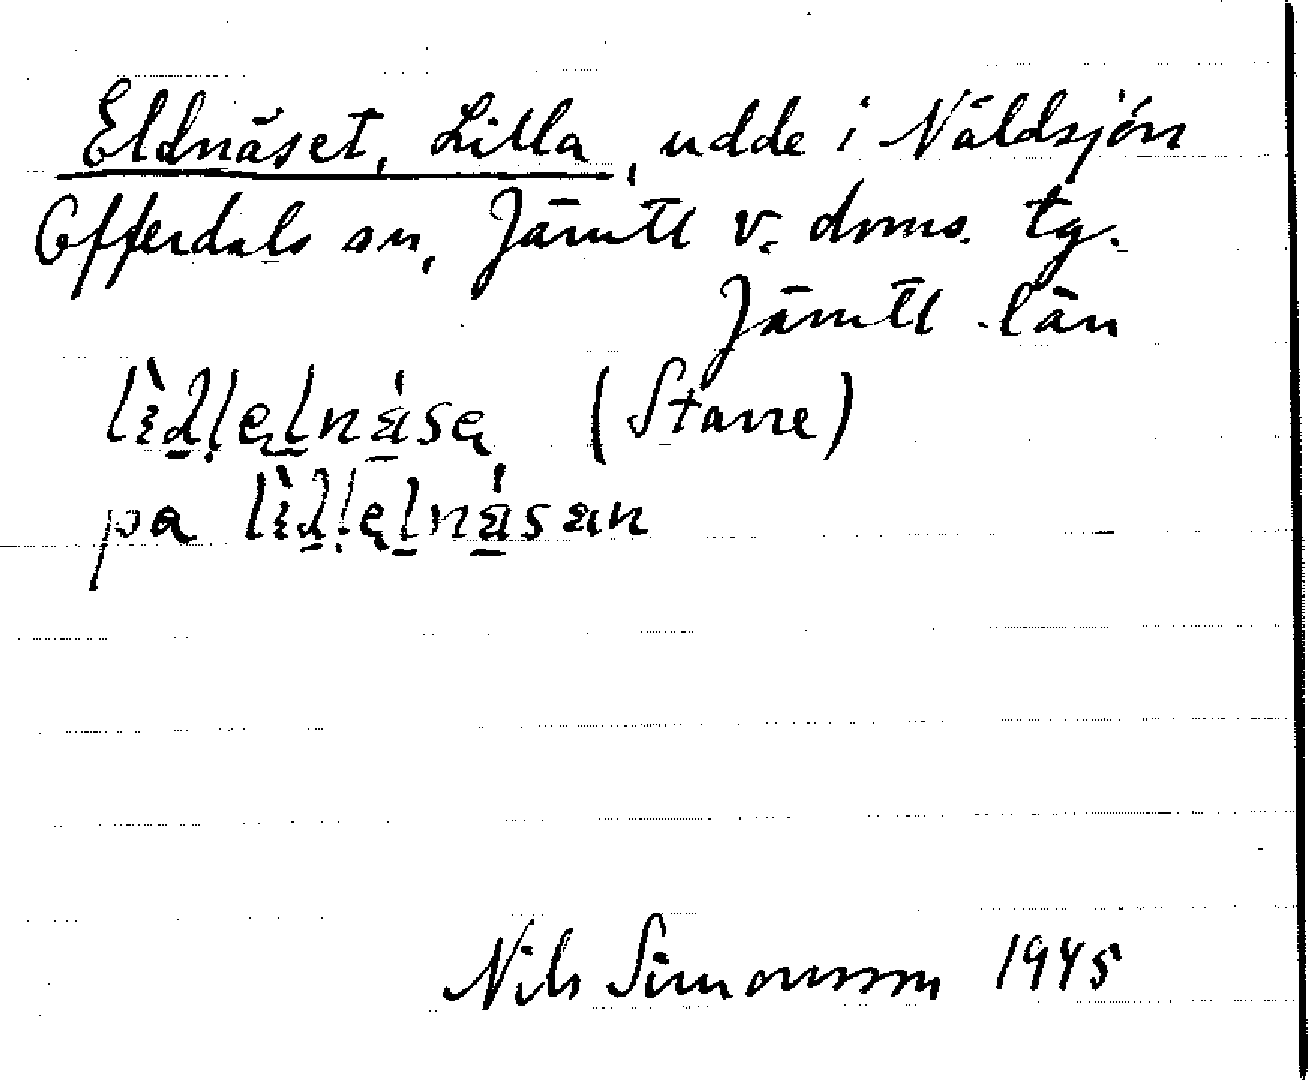 Eldnäset, Lilla, udde i Näldsjön
Offerdals sn, Jämtl v. doms. tg.
Jämtl. län
(Stavre)
pa
Nils Simonsson 1945